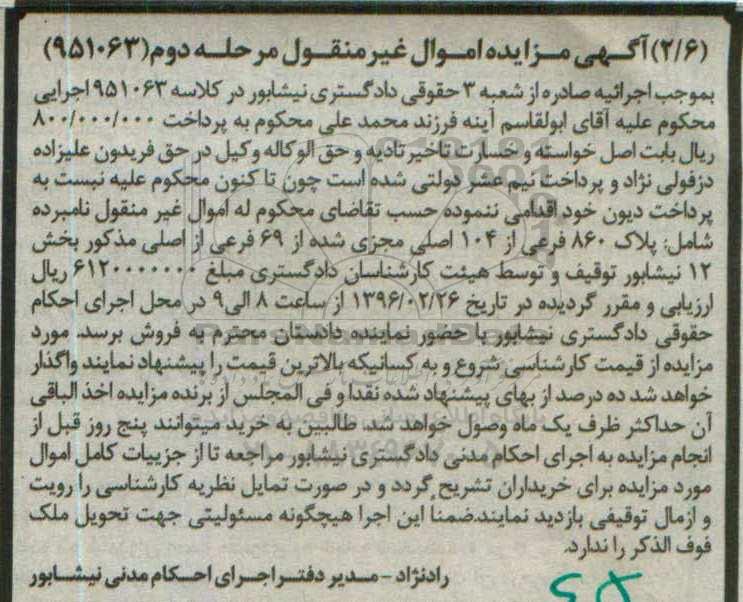 (۲/۶) آگهی مزایده اموال غیرمنقول مرحله دوم (۹۵۱۰۶۳)
بموجب اجرائیه صادره از شعبه ۳ حقوقی دادگستری نیشابور در کلاسه ۹۵۱۰۶۳ اجرایی
محکوم علیه آقای ابولقاسم آینه فرزند محمد علی محکوم به پرداخت ۸۰۰/۰۰۰/۰۰۰
ریال بابت اصل خواسته و خسارت تاخیر تادیه و حق الوکاله وکیل در حق فریدون علیزاده
دزفولی نژاد و پرداخت نیم عشر دولتی شده است چون تا کنون محکوم علیه نسبت به
پرداخت دیون خود اقدامی ننموده حسب تقاضای محکوم له اموال غیر منقول نامبرده
شامل: پلاک ۸۶۰ فرعی از ۱۰۴ اصلی مجزی شده از ۶۹ فرعی از اصلی مذکور بخش
۱۲ نیشابور توقیف و توسط هیئت کارشناسان دادگستری مبلغ ۶۱۲۰۰۰۰۰۰۰ ریال
ارزیابی و مقرر گردیده در تاریخ ۱۳۹۶/۰۲/۲۶ از ساعت ۸ الی ۹ در محل اجرای احکام
حقوقی دادگستری نیشابور با حضور نماینده دادستان محترم به فروش برسد. مورد
مزایده از قیمت کارشناسی شروع و به کسانیکه بالاترین قیمت را پیشنهاد نمایند واگذار
خواهد شد ده درصد از بهای پیشنهاد شده نقدا و فی المجلس از برنده مزایده اخذ الباقی
آن حداکثر ظرف یک ماه وصول خواهد شد. طالبین به خرید میتوانند پنج روز قبل از
انجام مزایده به اجرای احکام مدنی دادگستری نیشابور مراجعه تا از جزییات کامل اموال
مورد مزایده برای خریداران تشریح گردد و در صورت تمایل نظریه کارشناسی را رویت
و ازمال توقیفی بازدید نمایند.ضمنا این اجرا هیچگونه مسئولیتی جهت تحویل ملک
فوق الذکر را ندارد.
رادنژاد - مدیر دفتر اجرای احکام مدنی نیشابور